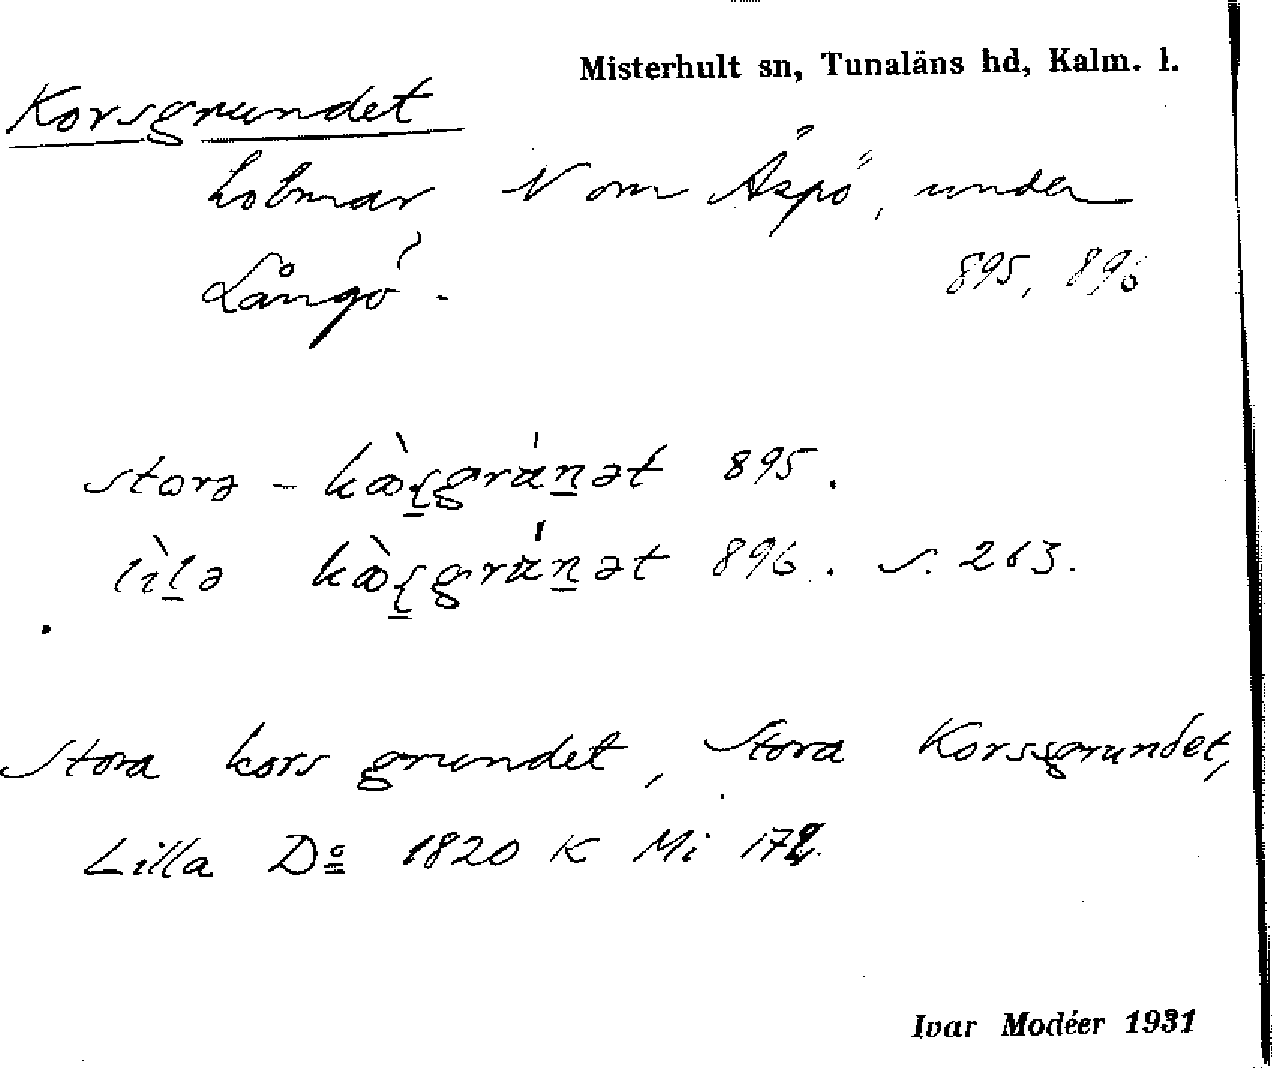 Misterhult sn, Tunaläns hd, Kalm. l.
Korsgrundet
holmar N om Äspö, under
Långö. 895, 896
storə - kòʂgránət 895.
lìlə kòʂgránət 896. s. 263.
Stora kors grundet, Stora Korssgrundet,
Lilla Do 1820 K Mi 172.
Ivar Modéer 1931